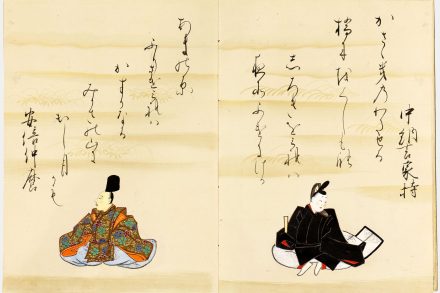 中納言家持
かさゝきのわたせる
橋におくしもの
しろきをみれは
夜そふけにける
あまの原
ふりさけみれは
かすかなる
みかさの山に
いてし月
かも
安倍仲麿